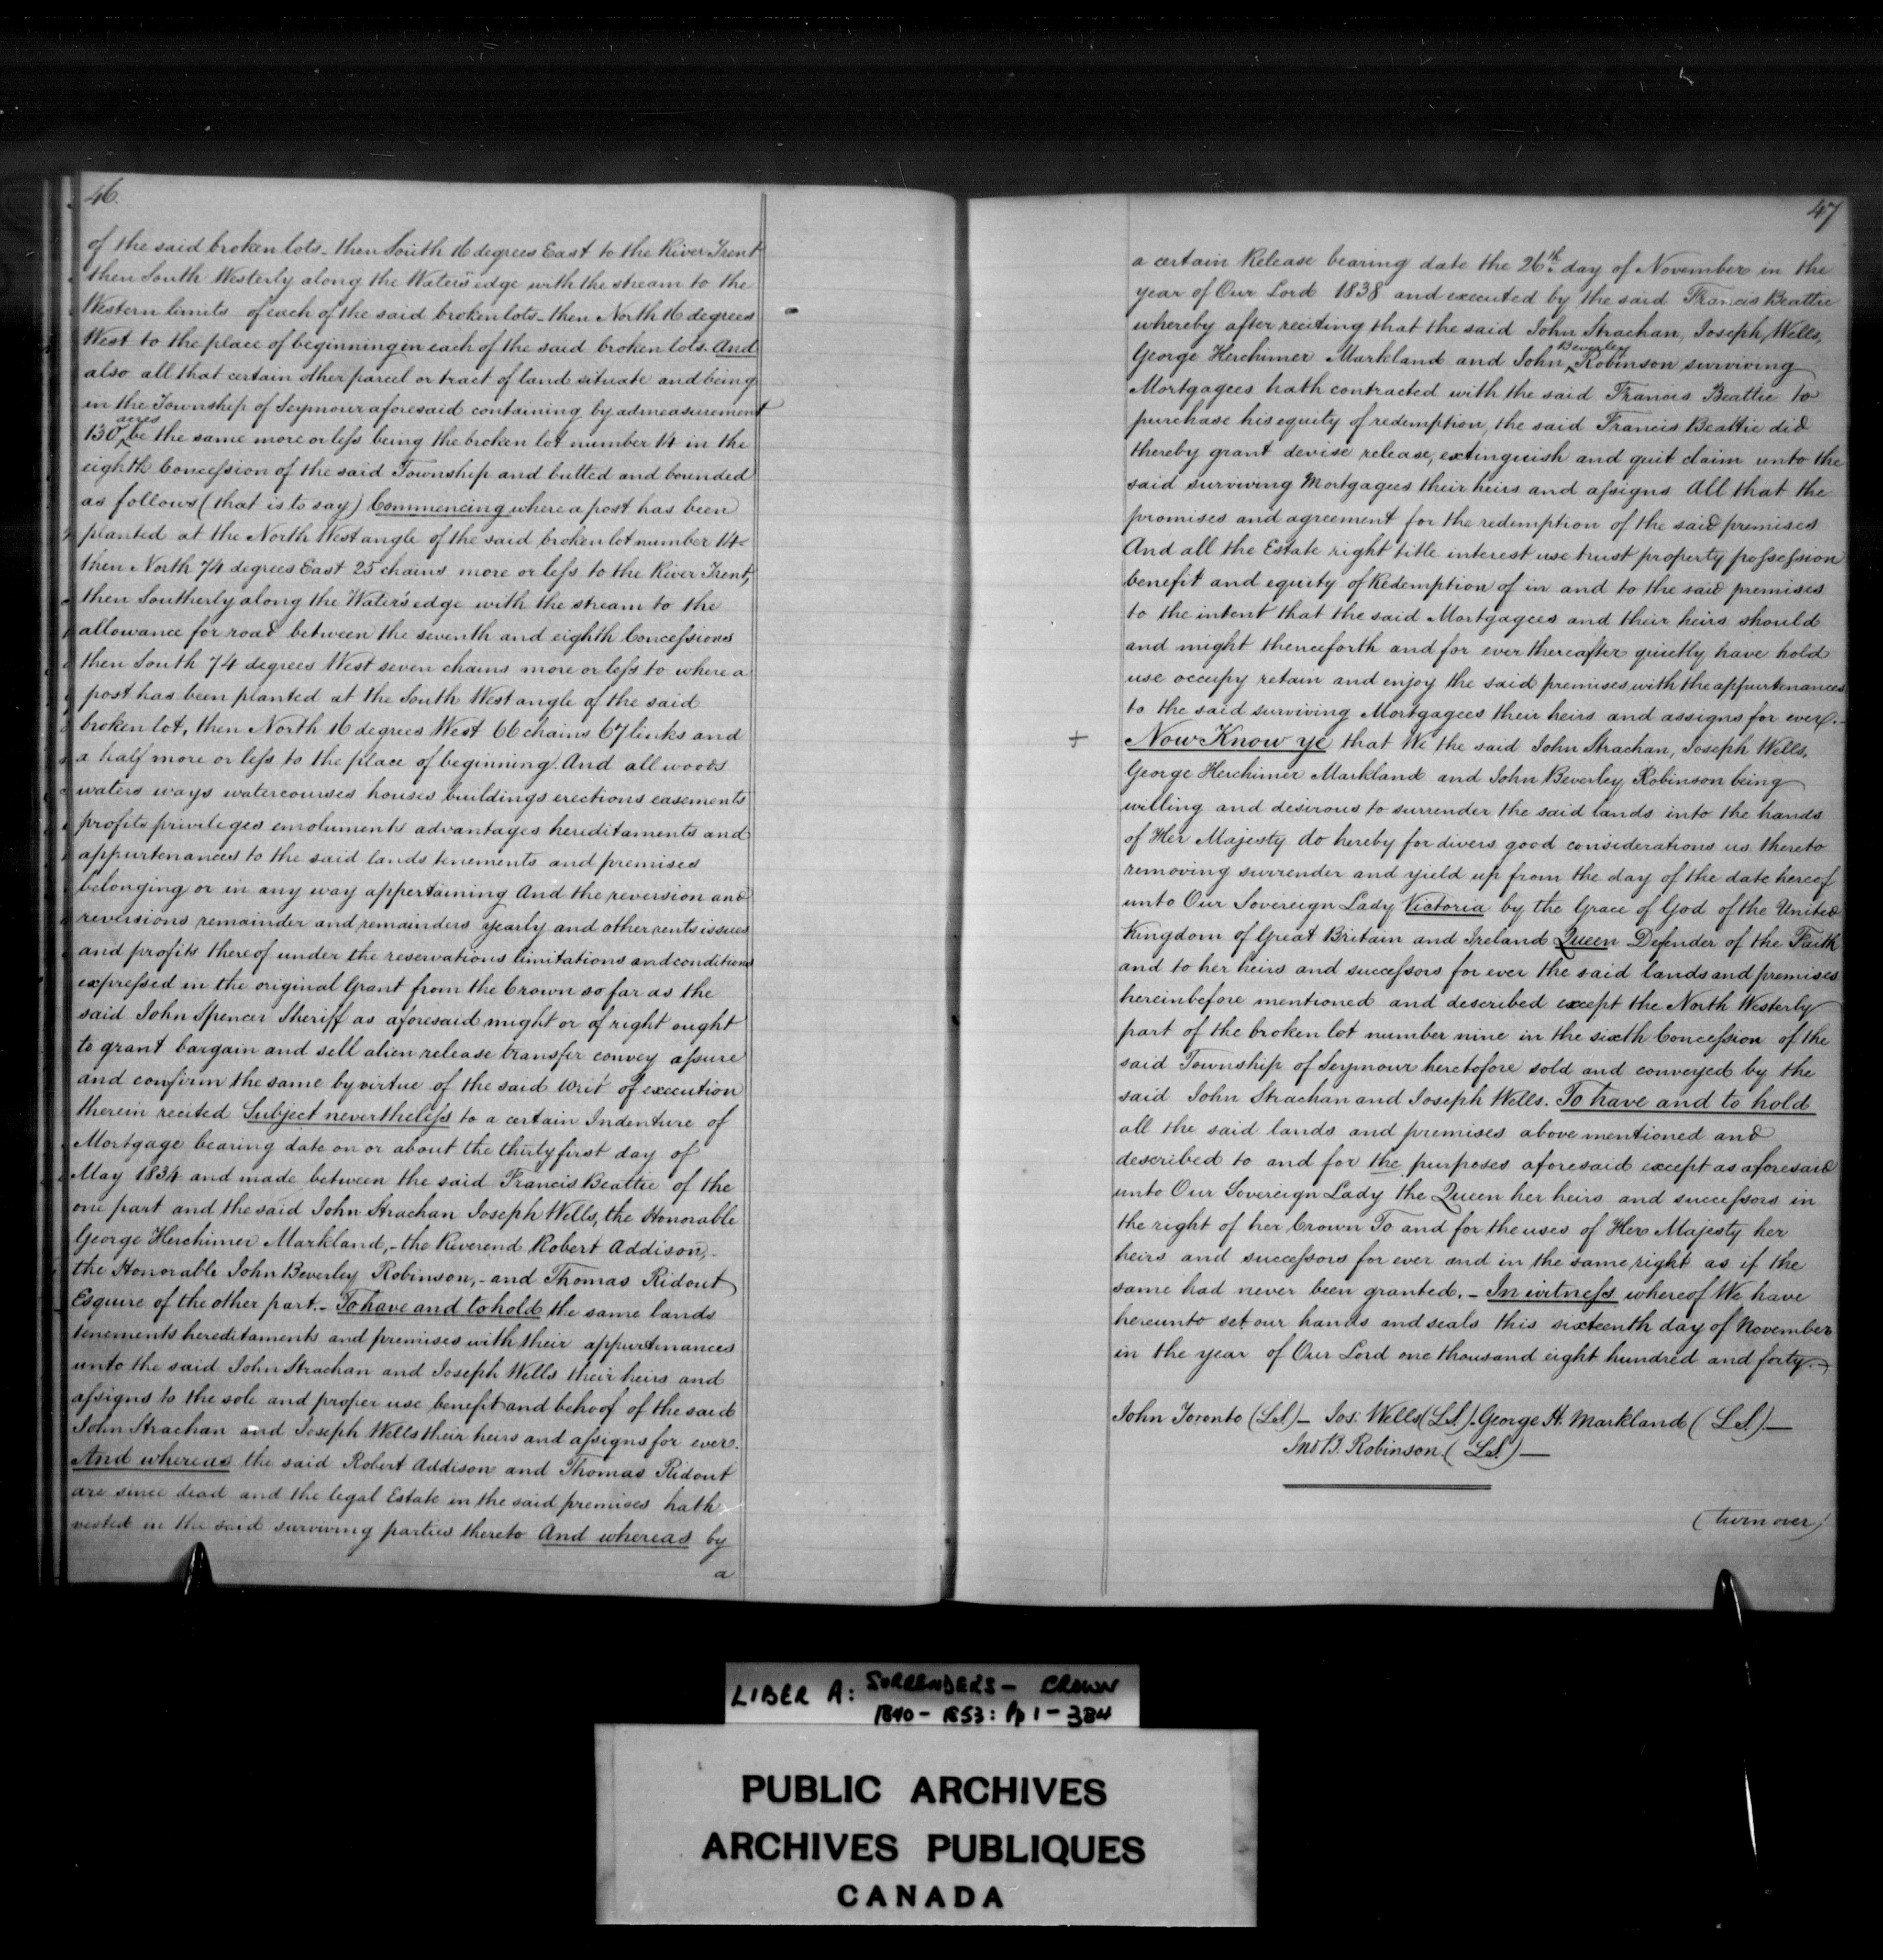 46.
of the said broken lots - then South 16 degrees East to the River Trent
then South Westerly along the Water's edge with the stream to the
Western limits of each of the said broken lots - then North 16 degrees
West to the place of beginning in each of the said broken lots. And
also all that certain other parcel or tract of land situate and being
in the Township of Seymour aforesaid containing by admeasurement
130 acres be the same more or less being the broken lot number 14 in the
eighth Concession of the said Township and butted and bounded
as follows (that is to say) Commencing where a post has been
planted at the North West angle of the said broken lot number 14 -
then North 74 degrees East 25 chains more or less to the River Trent,
then Southerly along the Water's edge with the stream to the
allowance for road between the seventh and eighth Concessions
then South 74 degrees West seven chains more or less to where a
post has been planted at the South West angle of the said
broken lot, then North 16 degrees West 66 chains 67 links and
a half more or less to the place of beginning. And all woods
waters ways watercourses houses buildings erections easements
profits privileges emoluments advantages hereditaments and
appurtenances to the said lands tenements and premises
belonging or in any way appertaining And the reversion and
reversions remainder and remainders yearly and other rents issues
and profits thereof under the reservations limitations and conditions
expressed in the original Grant from the Crown so far as the
said John Spencer Sheriff as aforesaid might or of right ought
to grant bargain and sell alien release transfer convey assure
and confirm the same by virtue of the said Writ of execution
therein recited Subject nevertheless to a certain Indenture of
Mortgage bearing date on or about the thirty first day of
May 1834 and made between the said Francis Beattie of the
one part and the said John Strachan Joseph Wells, the Honorable
George Herchimer Markland, - the Reverend Robert Addison, -
the Honorable John Beverley Robinson, - and Thomas Ridout
Esquire of the other part. - To have and to hold the same lands
tenements hereditaments and premises with their appurtenances
unto the said John Strachan and Joseph Wells their heirs and
assigns to the sole and proper use benefit and behoof of the said
John Strachan and Joseph Wells their heirs and assigns for ever.
And whereas the said Robert Addison and Thomas Ridout
are since dead and the legal Estate in the said premises hath
vested in the said surviving parties thereto And whereas by
a
47
a certain Release bearing date the 26th day of November in the
year of Our Lord 1838 and executed by the said Francis Beattie
whereby after reciting that the said John Strachan, Joseph Wells,
George Herchimer Markland and John Beverley Robinson surviving
Mortgagees hath contracted with the said Francis Beattie to
purchase his equity of redemption, the said Francis Beattie did
thereby grant devise release, extinguish and quit claim unto the
said surviving Mortgagees their heirs and assigns All that the
promises and agreement for the redemption of the said premises
And all the Estate right title interest use trust property possession
benefit and equity of Redemption of in and to the said premises
to the intent that the said Mortgagees and their heirs should
and might thenceforth and for ever thereafter quietly have hold
use occupy retain and enjoy the said premises with the appurtenances
to the said surviving Mortgagees their heirs and assigns for ever. -
+ Now Know ye that We the said John Strachan, Joseph Wells,
George Herchimer Markland and John Beverley Robinson being
willing and desirous to surrender the said lands into the hands
of Her Majesty do hereby for divers good considerations us thereto
removing surrender and yield up from the day of the date hereof
unto Our Sovereign Lady Victoria by the Grace of God of the United
Kingdom of Great Britain and Ireland Queen Defender of the Faith
and to her heirs and successors for ever the said lands and premises
hereinbefore mentioned and described except the North Westerly
part of the broken lot number nine in the sixth Concession of the
said Township of Seymour heretofore sold and conveyed by the
said John Strachan and Joseph Wells. To have and to hold
all the said lands and premises above mentioned and
described to and for the purposes aforesaid except as aforesaid
unto Our Sovereign Lady the Queen her heirs and successors in
the right of her Crown To and for the uses of Her Majesty her
heirs and successors for ever and in the same right as if the
same had never been granted. - In witness whereof We have
hereunto set our hands and seals this sixteenth day of November
in the year of Our Lord one thousand eight hundred and forty. -
John Toronto (L.S.) - Jos: Wells (L.S.) George H. Markland (L.S.) -
Jno B. Robinson (L.S.) -
(turn over)
LIBER A: SURRENDERS - CROWN
1840 - 1853: Pp 1 - 384
PUBLIC ARCHIVES
ARCHIVES PUBLIQUES
CANADA